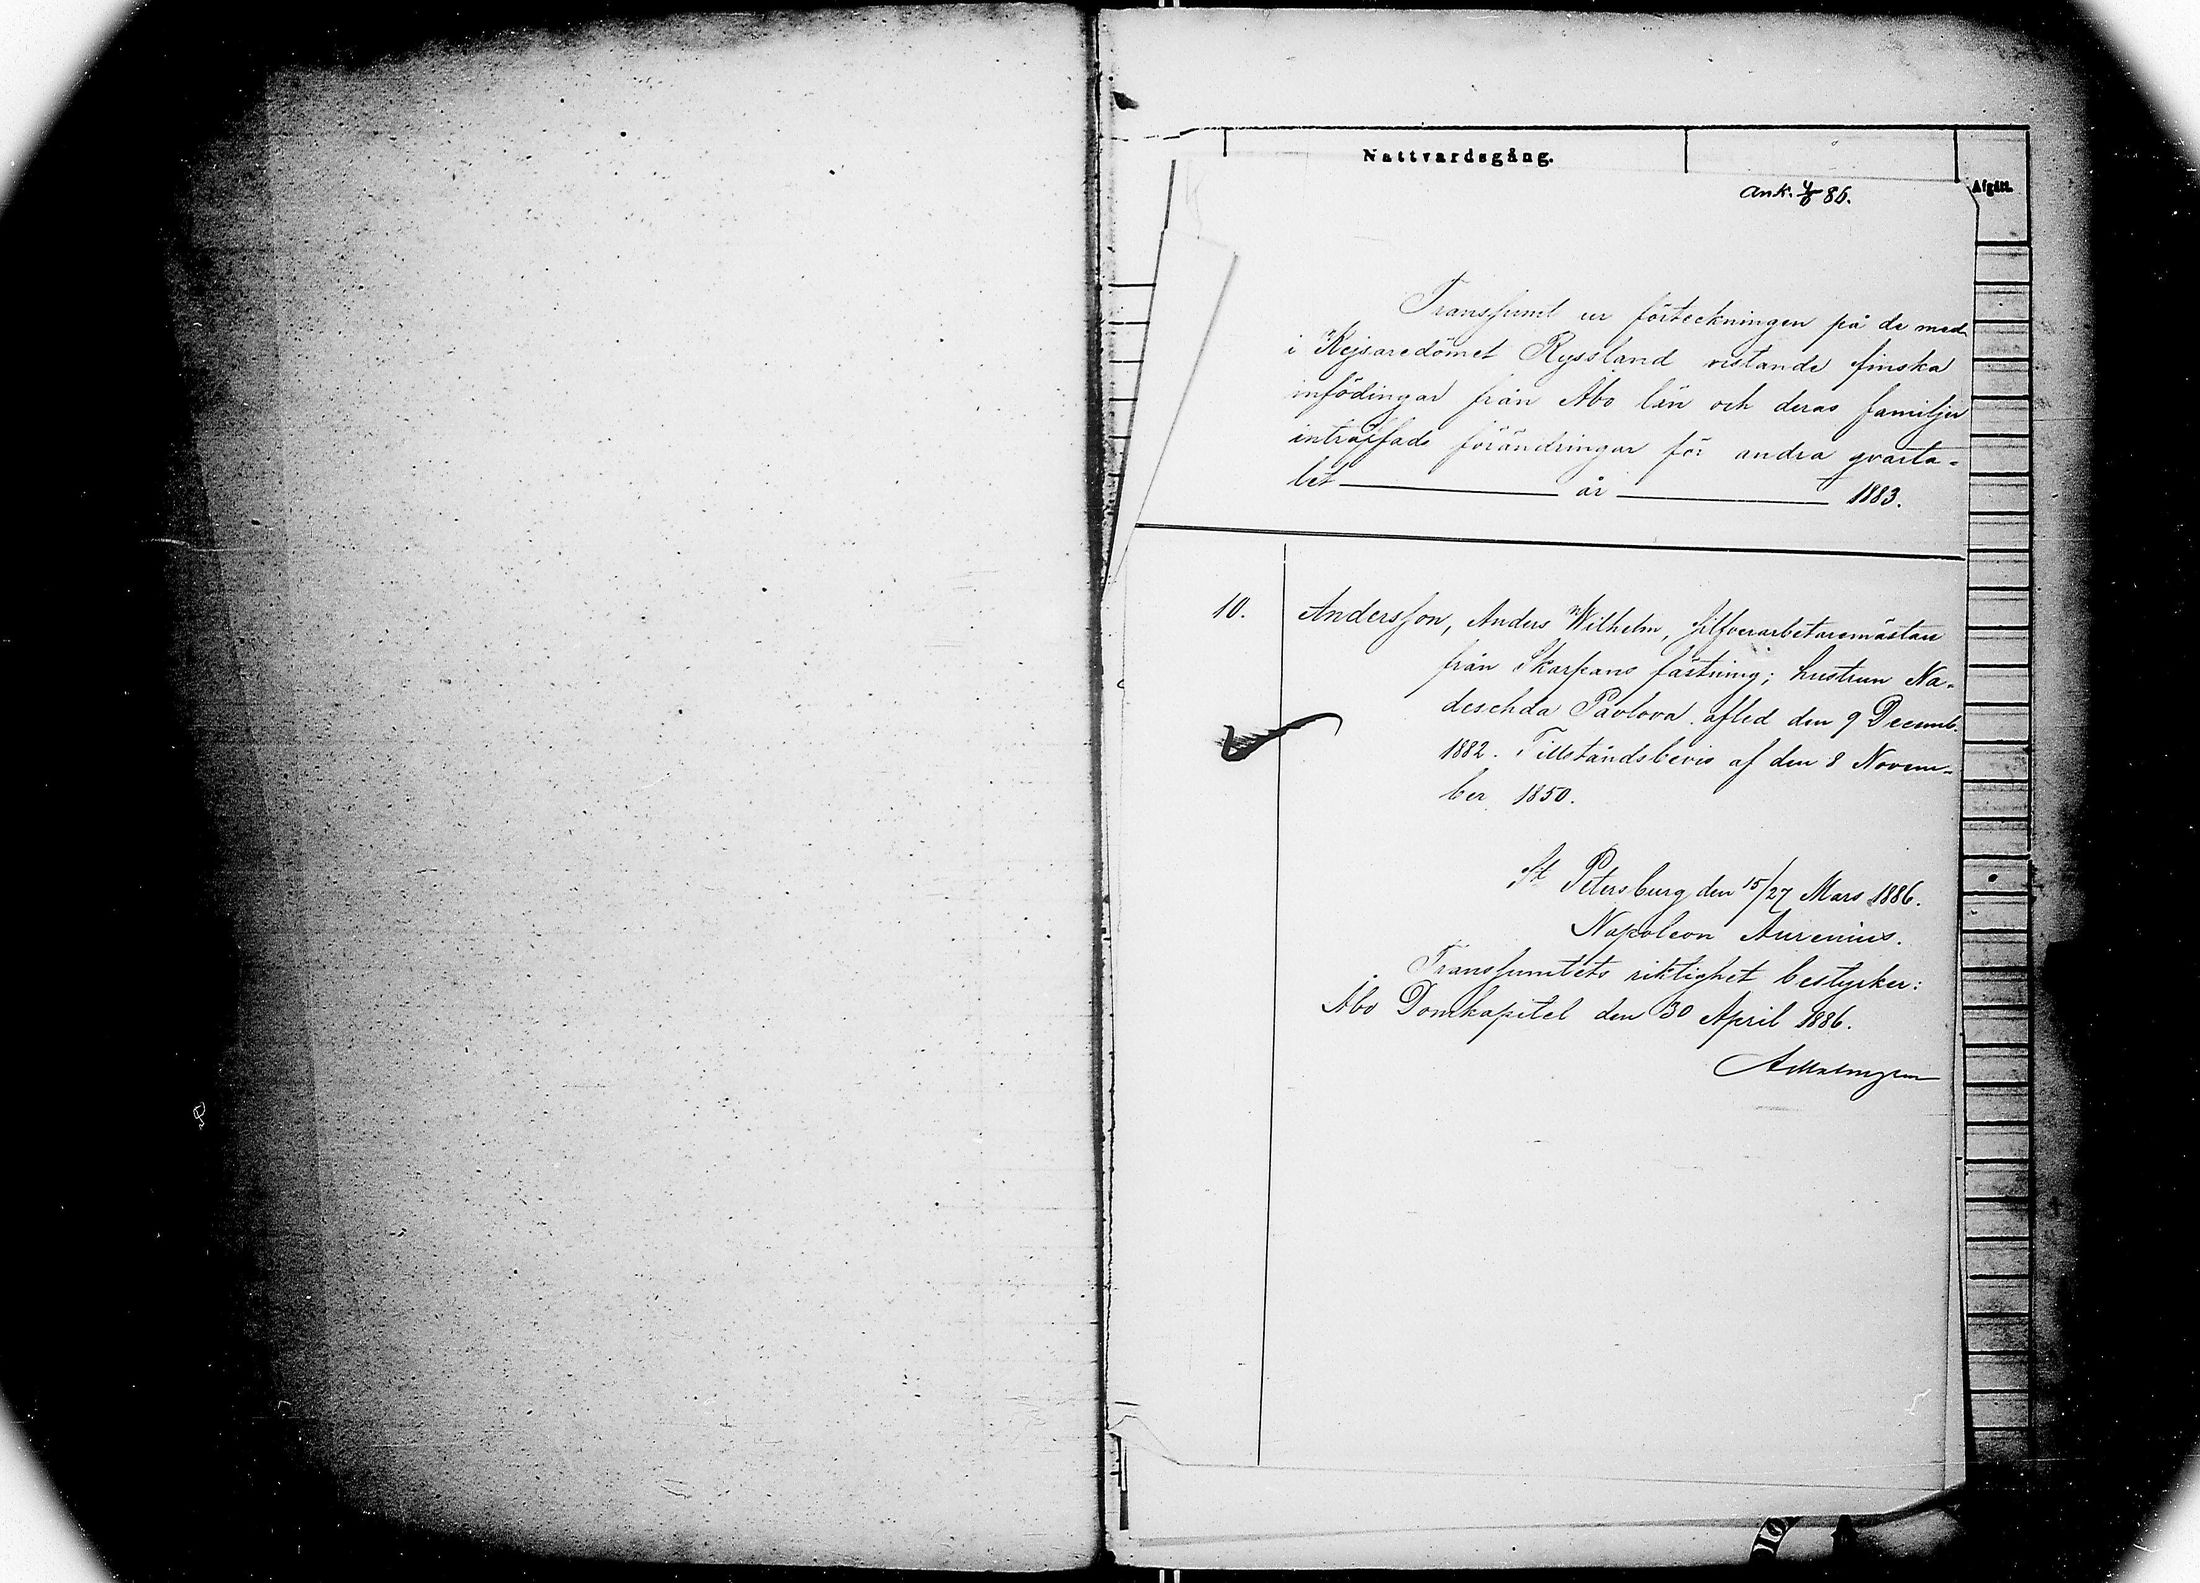 Nattvardsgång.
Afgått.
Ank. 86.
Transsumt ur förteckningen på de med
i Kejsaredömet Ryssland vistande finska
infödingar från Åbo län och deras familjer
inträffade förändringar för andra qvarta-
let — år — 1883.
10. Andersson, Anders Wilhelm, silfverarbetaremästare
från Skarpans fästning; hustrun Na-
deschda Pavlova afled den 9 Decemb.
1882. Tillståndsbevis af den 8 Novem-
ber 1850.
St Petersburg den 15/27 Mars 1886.
Napoleon Aurenius.
Transsumtets riktighet bestyrker:
Åbo Domkapitel den 30 April 1886.